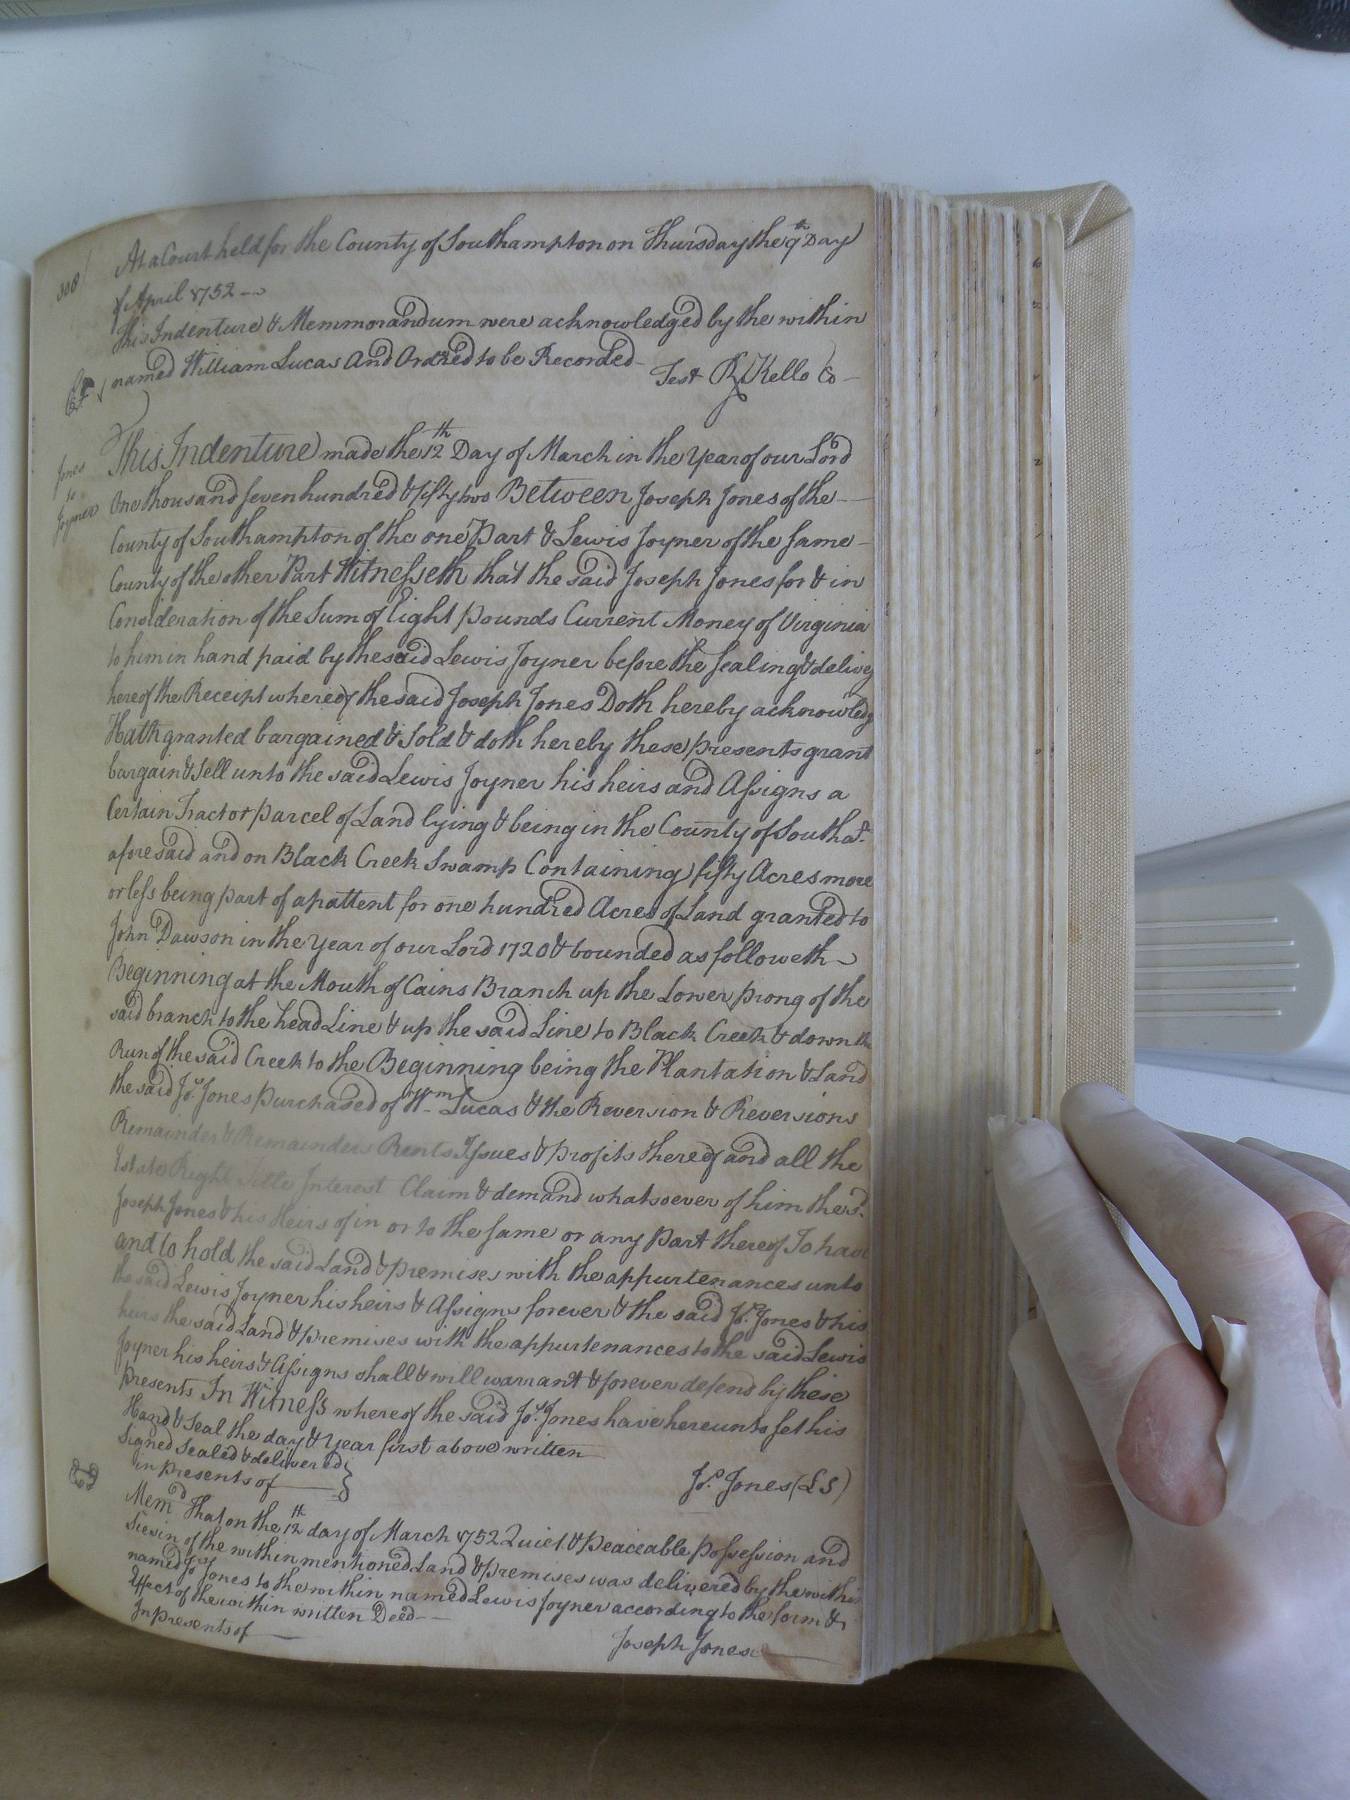 308
At a Court held for the County of Southampton on Thursday the 9th Day
of April 1752
This Indenture & Memmorandum were acknowledged by the within
named William Lucas And Ordred to be Recorded
Test R Kello
Jones
to
Joyner
This Indenture made the 12th Day of March in the Year of our Lord
One thousand seven hundred & fifty two Between Joseph Jones of the
County of Southampton of the one Part & Lewis Joyner of the same
County of the other Part Witnesseth that the said Joseph Jones for & in
Consideration of the Sum of Eight pounds Current Money of Virginia
to him in hand paid by the said Lewis Joyner before the sealing & delivey
hereof the Receipt whereof the said Joseph Jones Doth hereby acknowledg
Hath granted bargained & Sold & doth hereby these presents grant
bargain & Sell unto the said Lewis Joyner his heirs and Assigns a
Certain Tract or parcel of Land lying & being in the County of Southat
aforesaid and on Black Creek Swamp Containing fifty Acres more
or less being part of a pattent for one hundred Acres of Land granted to
John Dawson in the Year of our Lord 1720 & bounded as followeth
Beginning at the Mouth of Cains Branch up the Lower prong of the
said branch to the head Line & up the said Line to Black Creek & down the
Run of the said Creek to the Beginning being the Plantation & Land
the said Jos. Jones purchased of Wm Lucas & the Reversion & Reversions
Remainder & Remainders Rents Issues & profits thereof and all the
Estate Right Title Interest Claim & demand whatsoever of him the sd.
Joseph Jones & his Heirs of in or to the same or any part thereof To have
and to hold the said Land & premises with the appurtenances unto
the said Lewis Joyner his heirs & Assigns forever & the said Jos. Jones & his
heirs the said Land & premises with the appurtenances to the said Lewis
Joyner his heirs & Assigns shall & will warrant & forever defend by these
presents In Witness whereof the said Jos. Jones have hereunto set his
Hand & Seal the day & Year first above written
Signed Sealed & delivered
in presents of
Jos. Jones (L S)
Memd That on the 12th day of March 1752 Quiet & Peaceable possession and
Siesin of the within mentioned Land & premises was delivered by the within
named Jos Jones to the within named Lewis Joyner according to the form &
Effect of the within written Deed
In presents of
Joseph Jones